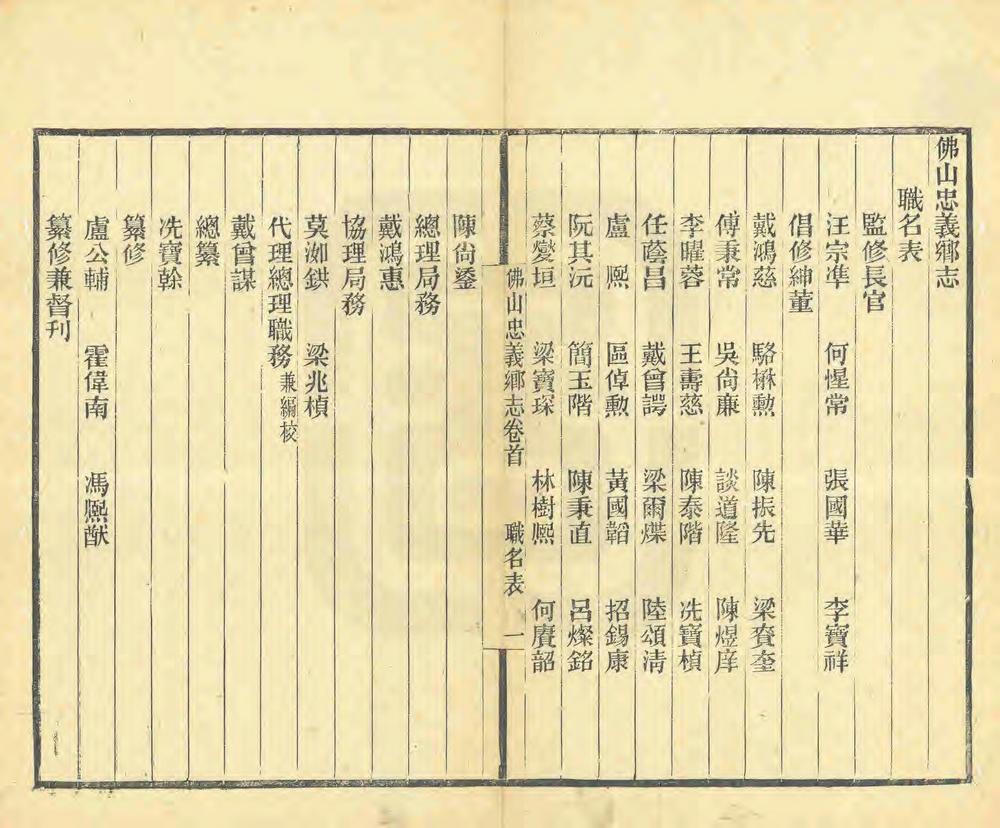 佛山忠義鄉志
職名表
監修長官
汪宗準 何惺常 張國華 李寶祥
倡修紳董
戴鴻慈 駱楙勳 陳振先 梁賚奎
傅秉常 吳尙廉 談道隆 陳煜庠
李曜蓉 王壽慈 陳泰階 冼寶楨
任蔭昌 戴曾諤 梁爾煠 陸頌淸
盧熙 區倬勲 黃國韜 招錫康
阮其沅 簡玉階 陳秉直 呂燦銘
蔡爕垣 梁寶琛 林樹熙 何賡韶
佛山忠義鄉志卷首 職名表 一
陳尙鎏
總理局務
戴鴻惠
協理局務
莫洳鉷 梁兆楨
代理總理職務兼編校
戴曾謀
總纂
冼寶榦
纂修
盧公輔 霍偉南 馮熙猷
纂修兼督刋